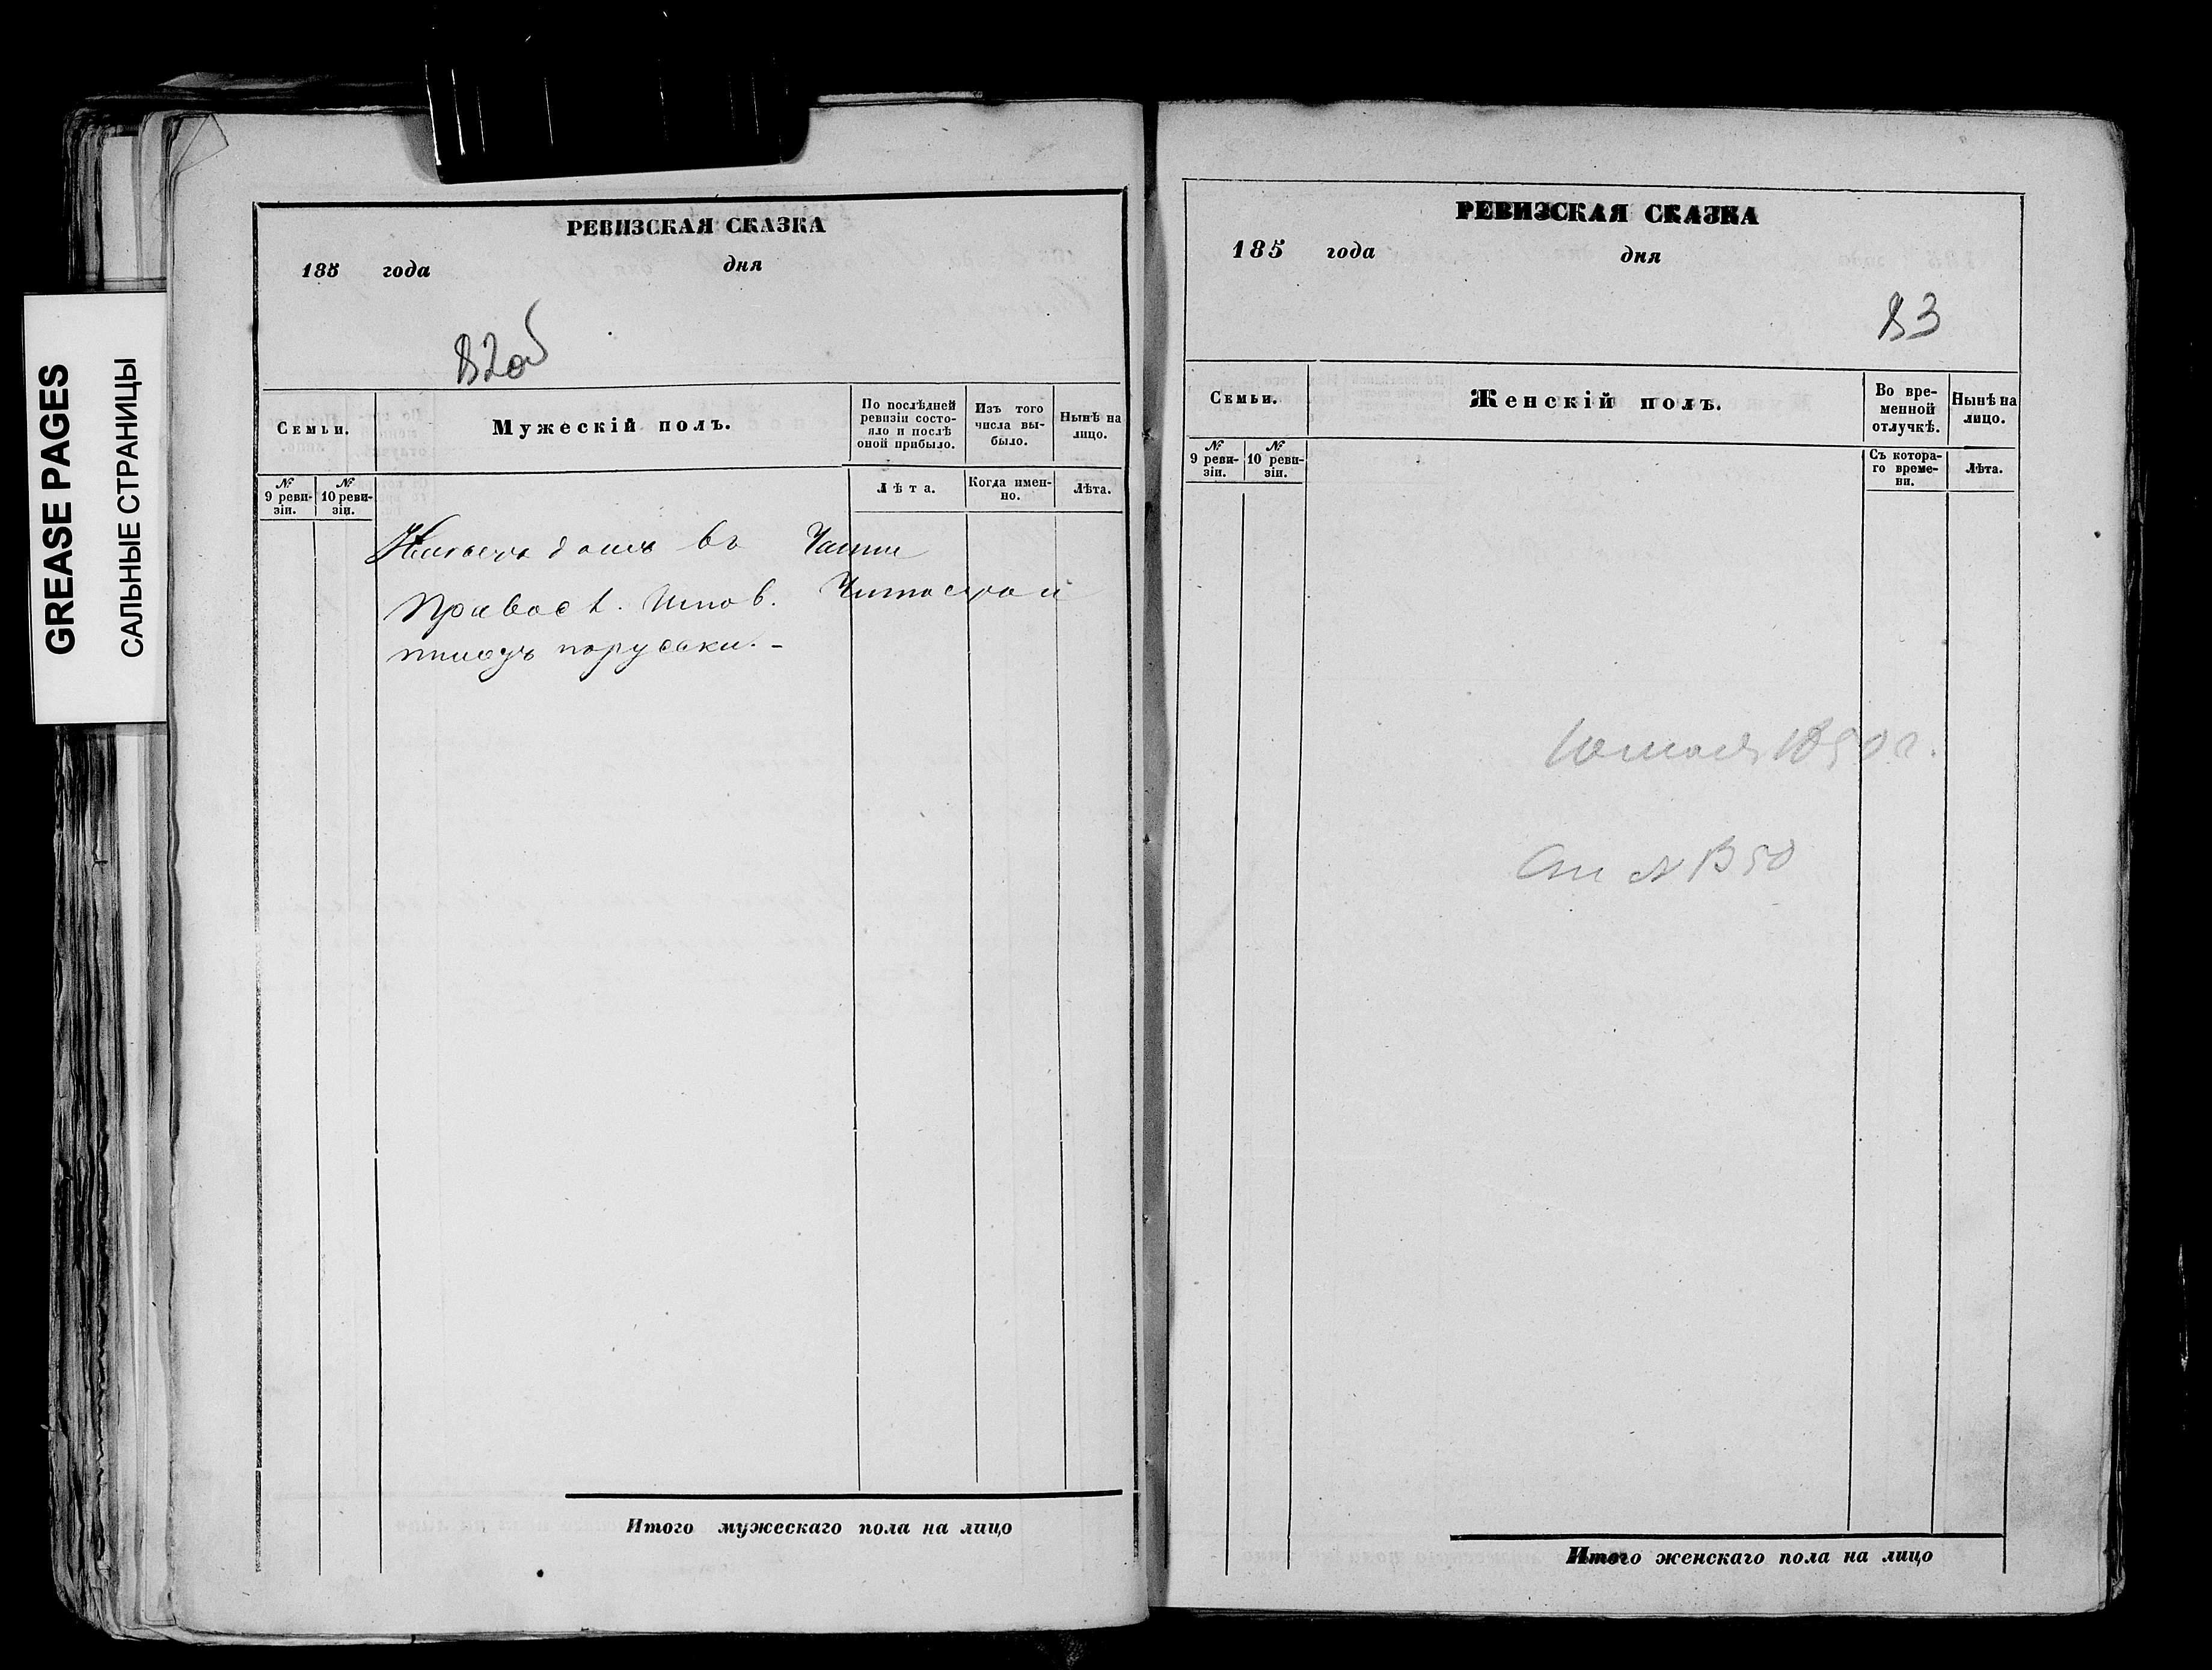 GREASE PAGES
САЛЬНЫЕ СТРАНИЦЫ
РЕВИЗСКАЯ СКАЗКА
185 года дня
82об
Семьи.
Мужескій полъ.
По послѣдней ревизіи состо-
яло и послѣ оной прибыло.
Изъ того числа вы-
было.
Нынѣ на лицо.
№ 9 реви-
зіи.
№ 10 реви-
зіи.
Лѣта.
Когда имен-
но.
Лѣта.
въ Части
порусски. -
Итого мужескаго пола на лицо
РЕВИЗСКАЯ СКАЗКА
185 года дня
83
Семьи.
Женскій полъ.
Во вре-
менной отлучкѣ.
Нынѣ на лицо.
№ 9 реви-
зіи.
№ 10 реви-
зіи.
Съ котора-
го време-
ни.
Лѣта.
Итого женскаго пола на лицо